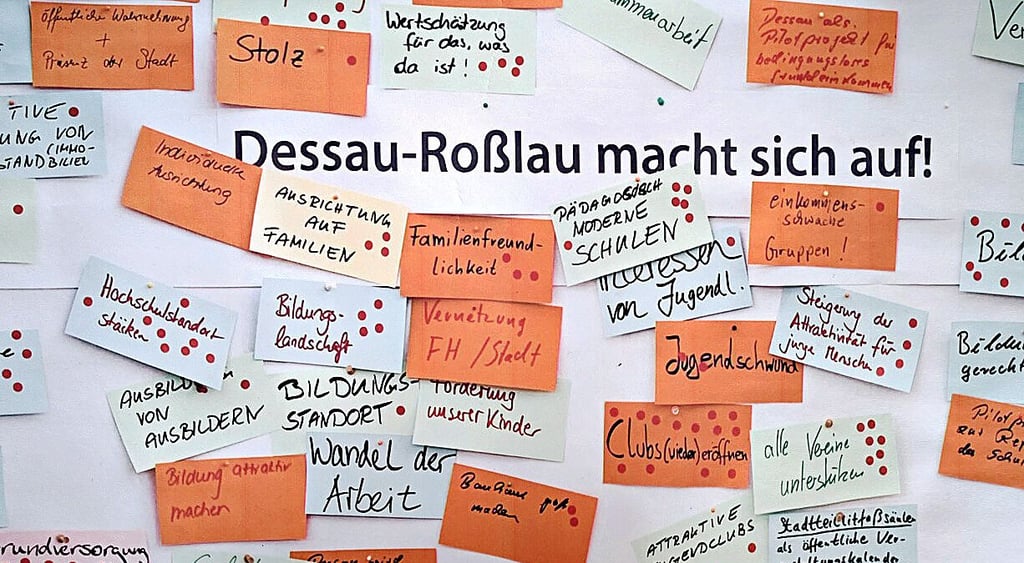 öffentliche Wahrnehmung
+
Präsenz der Stadt
Stolz
Wertschätzung
für das, was
da ist!
mmenarbeit
Dessau als
Pilotprojekt für
bedingungsloses
Grundeinkommen
Ve
TIVE
UNG VON
(IMMO-
STANDBILIEN
Dessau-Roßlau macht sich auf!
Individuelle
Ausrichtung
AUSRICHTUNG
AUF
FAMILIEN
Familienfreund-
lichkeit
PÄDAGOGISCH
MODERNE
SCHULEN
Interessen
von Jugendl.
einkommens-
schwache
Gruppen!
Bil
Hochschulstandort
stärken
Bildungs-
landschaft
Vernetzung
FH/Stadt
Jugendschwund
Steigerung der
Attraktivität für
junge Menschen
Bildun
gerecht
e
AUSBILDU
VON
AUSBILDERN
BILDUNGS-
STANDORT
Förderung
unserer Kinder
Clubs (wieder)eröffnen
alle Vereine
unterstützen
Pilotp
der Schul
Bildung attraktiv
machen
Wandel der
Arbeit
Bauhaus groß
machen
ATTRAKTIVE
UGENDCLUBS
Stadtteillitfaßsäulen
als öffentliche Ver-
altungskalender
rundversorgung